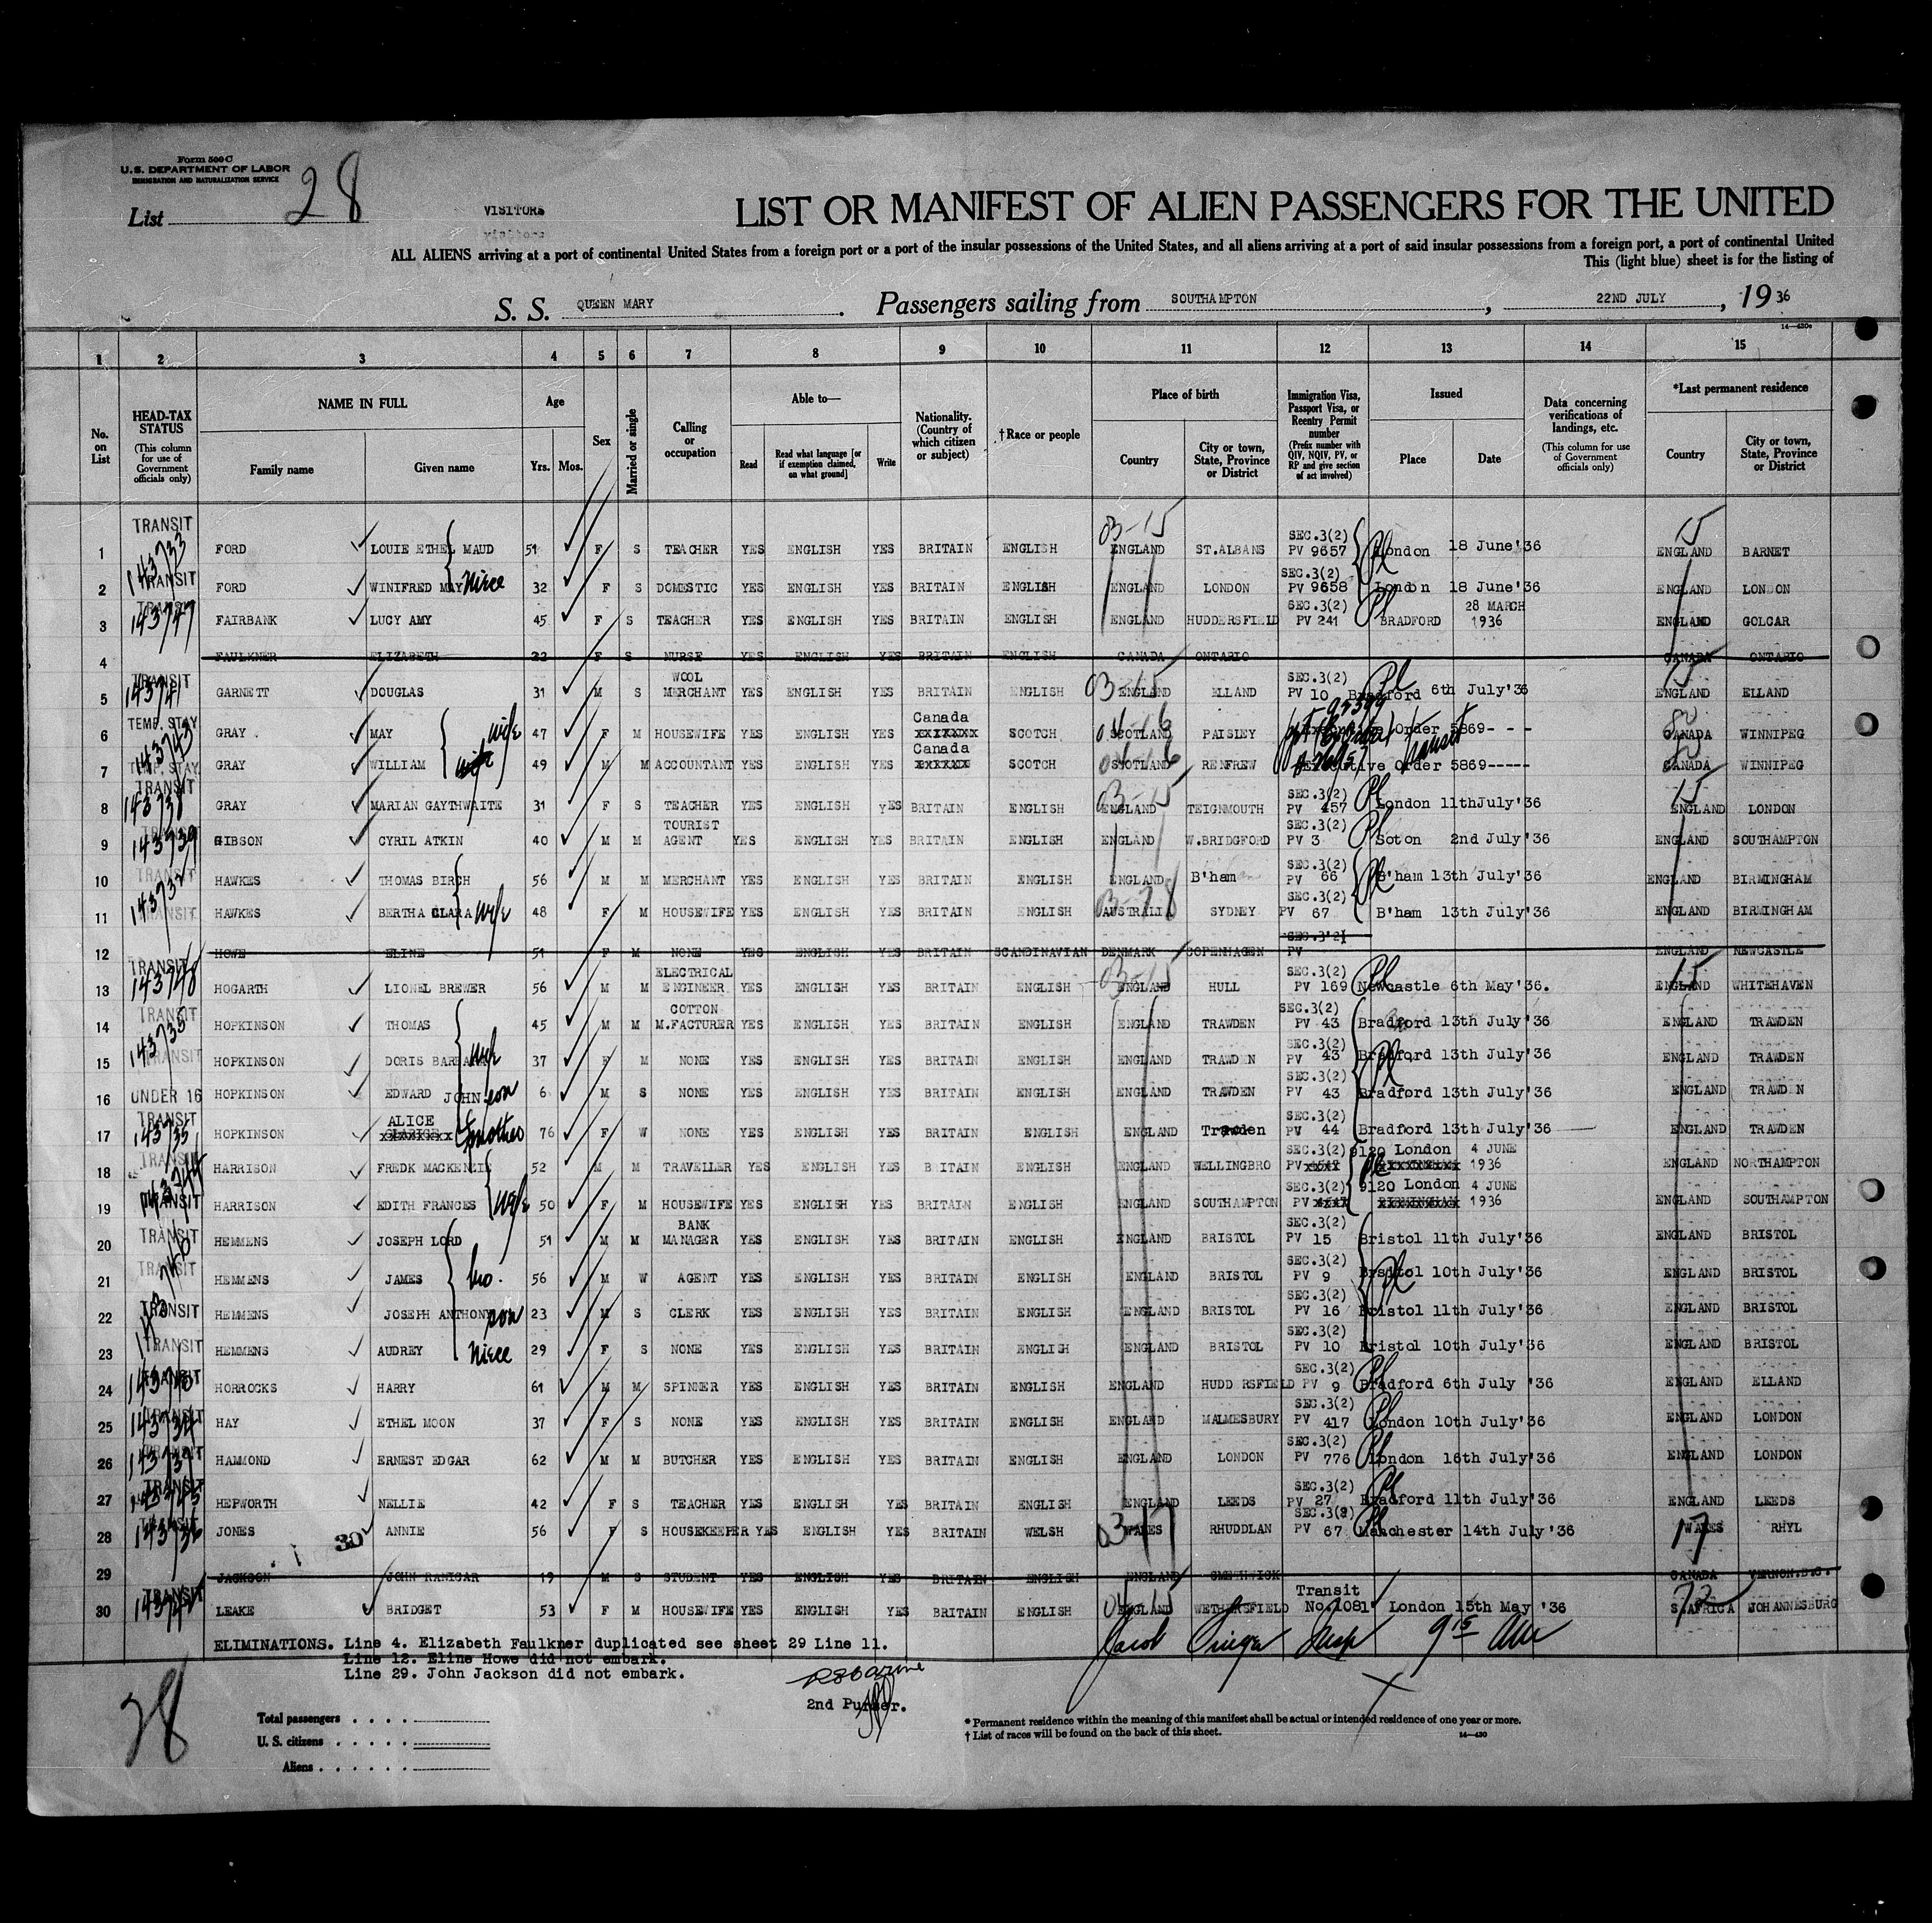 Form 500 C
U.S. DEPARTMENT OF LABOR
IMMIGRATION AND NATURALIZATION SERVICE
List 28
VISITORS
LIST OR MANIFEST OF ALIEN PASSENGERS FOR THE UNITED
ALL ALIENS arriving at a port of continental United States from a foreign port or a port of the insular possessions of the United States, and all aliens arriving at a port of said insular possessions from a foreign port, a port of continental United
This (light blue) sheet is for the listing of
S. S. QUEEN MARY. Passengers sailing from SOUTHAMPTON, 22ND JULY, 1936
1 2 3 4 5 6 7 8 9 10 11 12 13 14 15
No. on List
HEAD-TAX STATUS (This column for use of Government officials only)
NAME IN FULL Family name Given name
Age Yrs. Mos.
Sex
Married or single
Calling or occupation
Able to— Read Read what language [or if exemption claimed, on what ground] Write
Nationality. (Country of which citizen or subject)
†Race or people
Place of birth Country City or town, State, Province or District
Immigration Visa, Passport Visa, or Reentry Permit number (Prefix number with QIV, NQIV, PV, or RP and give section of act involved)
Issued Place Date
Data concerning verifications of landings, etc. (This column for use of Government officials only)
*Last permanent residence Country City or town, State, Province or District
1 TRANSIT FORD LOUIE ETHEL MAUD 51 F S TEACHER YES ENGLISH YES BRITAIN ENGLISH 03-15 ENGLAND ST.ALBANS SEC.3(2) PV 9657 London 18 June'36 15 ENGLAND BARNET
2 143733 TRANSIT FORD WINIFRED MAY Niece 32 F S DOMESTIC YES ENGLISH YES BRITAIN ENGLISH ENGLAND LONDON SEC.3(2) PV 9658 London 18 June'36 ENGLAND LONDON
3 143747 FAIRBANK LUCY AMY 45 F S TEACHER YES ENGLISH YES BRITAIN ENGLISH ENGLAND HUDDERSFIELD SEC.3(2) PV 241 BRADFORD 28 MARCH 1936 ENGLAND GOLCAR
4 FAULKNER ELIZABETH 22 F S NURSE YES ENGLISH YES BRITAIN ENGLISH CANADA ONTARIO CANADA ONTARIO
5 TRANSIT GARNETT DOUGLAS 31 M S WOOL MERCHANT YES ENGLISH YES BRITAIN ENGLISH 03-15 ENGLAND ELLAND SEC.3(2) PV 10 Bradford 6th July'36 15 ENGLAND ELLAND
6 TEMP. STAY GRAY MAY wife 47 F M HOUSEWIFE YES ENGLISH YES Canada SCOTCH 04-16 SCOTLAND PAISLEY Order 5869- - - CANADA WINNIPEG
7 143743 TEMP. STAY GRAY WILLIAM 49 M M ACCOUNTANT YES ENGLISH YES Canada SCOTCH 04-16 SCOTLAND RENFREW Executive Order 5869----- transit CANADA WINNIPEG
8 TRANSIT 143738 GRAY MARIAN GAYTHWAITE 31 F S TEACHER YES ENGLISH YES BRITAIN ENGLISH 03-15 ENGLAND TEIGNMOUTH SEC.3(2) PV 457 London 11thJuly'36 15 ENGLAND LONDON
9 143739 GIBSON CYRIL ATKIN 40 M M TOURIST AGENT YES ENGLISH YES BRITAIN ENGLISH ENGLAND W.BRIDGFORD SEC.3(2) PV 3 Soton 2nd July'36 ENGLAND SOUTHAMPTON
10 TRANSIT HAWKES THOMAS BIRCH 56 M M MERCHANT YES ENGLISH YES BRITAIN ENGLISH ENGLAND B'ham SEC.3(2) PV 66 B'ham 13th July'36 ENGLAND BIRMINGHAM
11 TRANSIT HAWKES BERTHA CLARA wife 48 F M HOUSEWIFE YES ENGLISH YES BRITAIN ENGLISH 03-78 AUSTRALIA SYDNEY SEC.3(2) PV 67 B'ham 13th July'36 ENGLAND BIRMINGHAM
12 HOWE ELINE 51 F M NONE YES ENGLISH YES BRITAIN SCANDINAVIAN DENMARK COPENHAGEN SEC.3(2) PV ENGLAND NEWCASTLE
13 TRANSIT 143748 HOGARTH LIONEL BREWER 56 M M ELECTRICAL ENGINEER YES ENGLISH YES BRITAIN ENGLISH 03-15 ENGLAND HULL SEC.3(2) PV 169 Newcastle 6th May'36. 15 ENGLAND WHITEHAVEN
14 TRANSIT HOPKINSON THOMAS 45 M M COTTON M.FACTURER YES ENGLISH YES BRITAIN ENGLISH ENGLAND TRAWDEN SEC.3(2) PV 43 Bradford 13th July'36 ENGLAND TRAWDEN
15 143735 TRANSIT HOPKINSON DORIS BARBARA wife 37 F M NONE YES ENGLISH YES BRITAIN ENGLISH ENGLAND TRAWDEN SEC.3(2) PV 43 Bradford 13th July'36 ENGLAND TRAWDEN
16 UNDER 16 HOPKINSON EDWARD JOHN son 6 M S NONE YES ENGLISH YES BRITAIN ENGLISH ENGLAND TRAWDEN SEC.3(2) PV 43 Bradford 13th July'36 ENGLAND TRAWD N
17 TRANSIT 143735 HOPKINSON ALICE mother 76 F W NONE YES ENGLISH YES BRITAIN ENGLISH ENGLAND Trawden SEC.3(2) PV 44 Bradford 13th July'36 ENGLAND TRAWDEN
18 TRANSIT HARRISON FREDK MACKENZIE 52 M M TRAVELLER YES ENGLISH YES B ITAIN ENGLISH ENGLAND WELLINGBRO SEC.3(2) PV 9120 London 4 JUNE 1936 ENGLAND NORTHAMPTON
19 TRANSIT HARRISON EDITH FRANCES wife 50 F M HOUSEWIFE YES ENGLISH YES BRITAIN ENGLISH ENGLAND SOUTHAMPTON SEC.3(2) PV 9120 London BIRMINGHAM 4 JUNE 1936 ENGLAND SOUTHAMPTON
20 TRANSIT HEMMENS JOSEPH LORD 51 M M BANK MANAGER YES ENGLISH YES BRITAIN ENGLISH ENGLAND BRISTOL SEC.3(2) PV 15 Bristol 11th July'36 ENGLAND BRISTOL
21 TRANSIT HEMMENS JAMES bro. 56 M W AGENT YES ENGLISH YES BRITAIN ENGLISH ENGLAND BRISTOL SEC.3(2) PV 9 Bristol 10th July'36 ENGLAND BRISTOL
22 TRANSIT HEMMENS JOSEPH ANTHONY son 23 M S CLERK YES ENGLISH YES BRITAIN ENGLISH ENGLAND BRISTOL SEC.3(2) PV 16 Bristol 11th July'36 ENGLAND BRISTOL
23 TRANSIT HEMMENS AUDREY Niece 29 F S NONE YES ENGLISH YES BRITAIN ENGLISH ENGLAND BRISTOL SEC.3(2) PV 10 Bristol 10th July'36 ENGLAND BRISTOL
24 TRANSIT HORROCKS HARRY 61 M M SPINNER YES ENGLISH YES BRITAIN ENGLISH ENGLAND HUDD RSFIELD SEC.3(2) PV 9 Bradford 6th July '36 ENGLAND ELLAND
25 TRANSIT 143734 HAY ETHEL MOON 37 F S NONE YES ENGLISH YES BRITAIN ENGLISH ENGLAND MALMESBURY SEC.3(2) PV 417 London 10th July'36 ENGLAND LONDON
26 TRANSIT HAMMOND ERNEST EDGAR 62 M M BUTCHER YES ENGLISH YES BRITAIN ENGLISH ENGLAND LONDON SEC.3(2) PV 776 London 16th July'36 ENGLAND LONDON
27 TRANSIT HEPWORTH NELLIE 42 F S TEACHER YES ENGLISH YES BRITAIN ENGLISH ENGLAND LEEDS SEC.3(2) PV 27 Bradford 11th July'36 ENGLAND LEEDS
28 TRANSIT 143736 JONES 30 ANNIE 56 F S HOUSEKEEPER YES ENGLISH YES BRITAIN WELSH 03-17 WALES RHUDDLAN SEC.3(2) PV 67 Manchester 14th July'36 17 WALES RHYL
29 JACKSON JOHN RANIGAR 19 M S STUDENT YES ENGLISH YES BRITAIN ENGLISH ENGLAND SMETHWICK CANADA VERNON.B.C.
30 TRANSIT LEAKE BRIDGET 53 F M HOUSEWIFE YES ENGLISH YES BRITAIN ENGLISH ENGLAND WETHERSFIELD Transit No.1081 London 15th May '36 72 S.AFRICA JOHANNESBURG
ELIMINATIONS. Line 4. Elizabeth Faulkner duplicated see sheet 29 Line 11.
Line 12. Eline Howe did not embark.
Line 29. John Jackson did not embark.
2nd Purser.
28
Total passengers
U. S. citizens
Aliens
* Permanent residence within the meaning of this manifest shall be actual or intended residence of one year or more.
† List of races will be found on the back of this sheet.
14—430